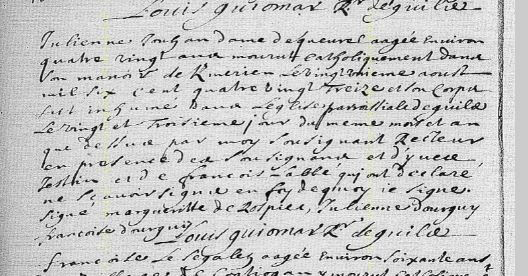 Louis guiomar Rr. de guilie
Julienne Jouhan dame de queurel aagée Environ
quatre vingt ans mourut Catholiquement dans
son manoir de Kmerien Le vingt uniéme aoust
mil six cent quatre vingt treize et son Corps
fut inhumé dans L'église parroissiale de guile
Le vingt et Troisiéme jour du meme mois et an
que dessus par moy soussignant Recteur
en presence des soussignans et d'yves
et de francois Labbe qui ont declaré
ne sçavoir signer en foy de quoy ie signe
signé marguerite de Rospiec, Julienne dourguy
francoise dourguy
Louis guiomar Rr. de guilie
francoise Le Segalez aagée Environ soixante ans
mourut Catholique